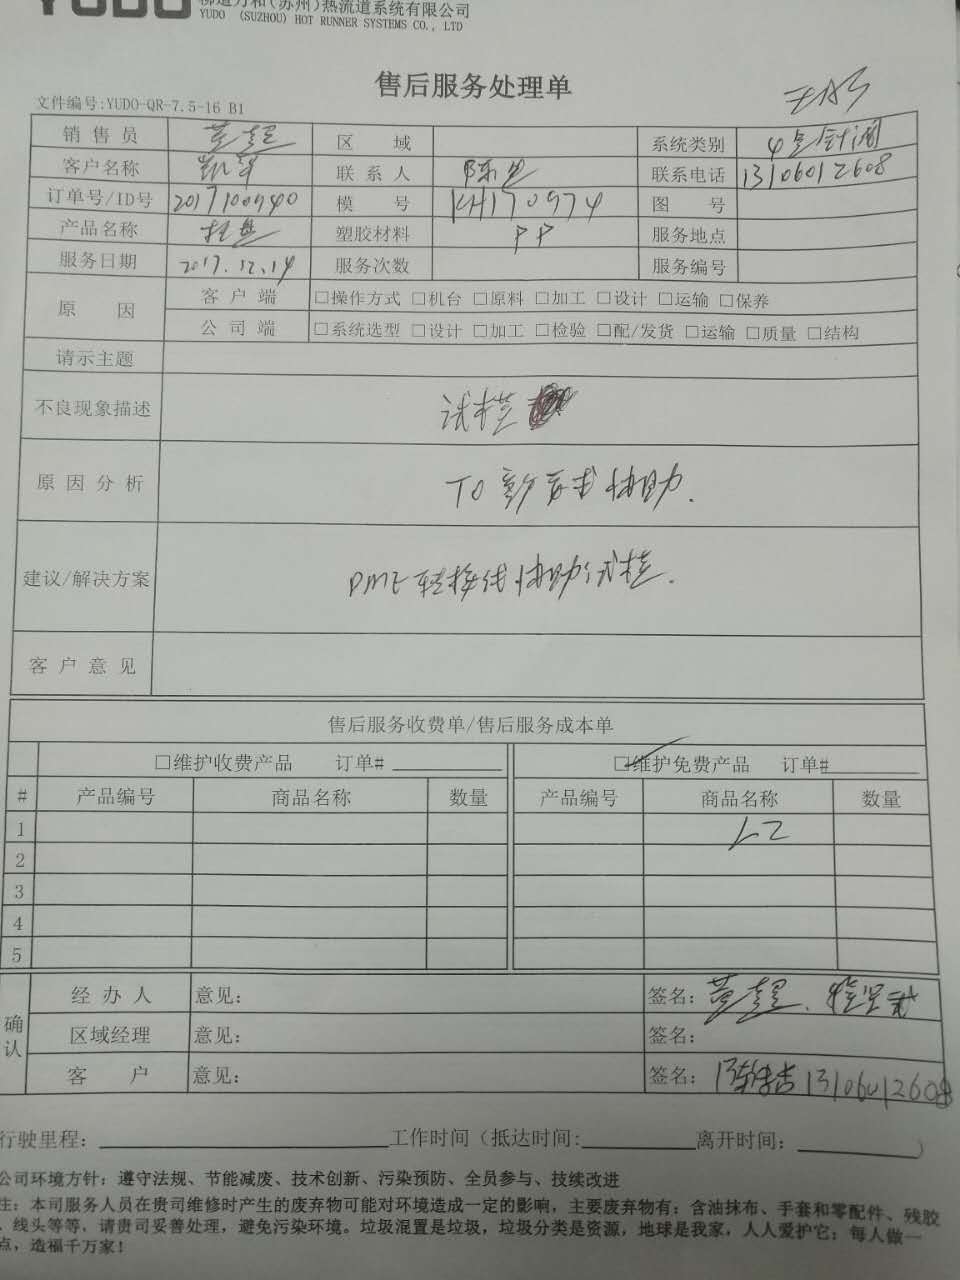 YUDO 柳道万和(苏州)热流道系统有限公司
YUDO (SUZHOU) HOT RUNNER SYSTEMS CO., LTD
售后服务处理单
文件编号:YUDO-QR-7.5-16 B1
销售员 黄超 区域 系统类别 4点针阀
客户名称 联系人 陈 联系电话 13106012608
订单号/ID号 2017100940 模号 KH170974 图号
产品名称 托盘 塑胶材料 PP 服务地点
服务日期 2017.12.14 服务次数 服务编号
原因 客户端 □操作方式 □机台 □原料 □加工 □设计 □运输 □保养
公司端 □系统选型 □设计 □加工 □检验 □配/发货 □运输 □质量 □结构
请示主题
不良现象描述 试模
原因分析 T0 要求协助.
建议/解决方案 DME转接线协助试模.
客户意见
售后服务收费单/售后服务成本单
□维护收费产品 订单# □维护免费产品 订单#
# 产品编号 商品名称 数量 产品编号 商品名称 数量
1
2
3
4
5
确认 经办人 意见: 签名: 黄超.
区域经理 意见: 签名:
客户 意见: 签名: 陈 13106012608
行驶里程: 工作时间(抵达时间: 离开时间: )
公司环境方针: 遵守法规、节能减废、技术创新、污染预防、全员参与、技续改进
注: 本司服务人员在贵司维修时产生的废弃物可能对环境造成一定的影响, 主要废弃物有: 含油抹布、手套和零配件、残胶
、线头等等, 请贵司妥善处理, 避免污染环境。垃圾混置是垃圾, 垃圾分类是资源, 地球是我家, 人人爱护它; 每人做一
点, 造福千万家!